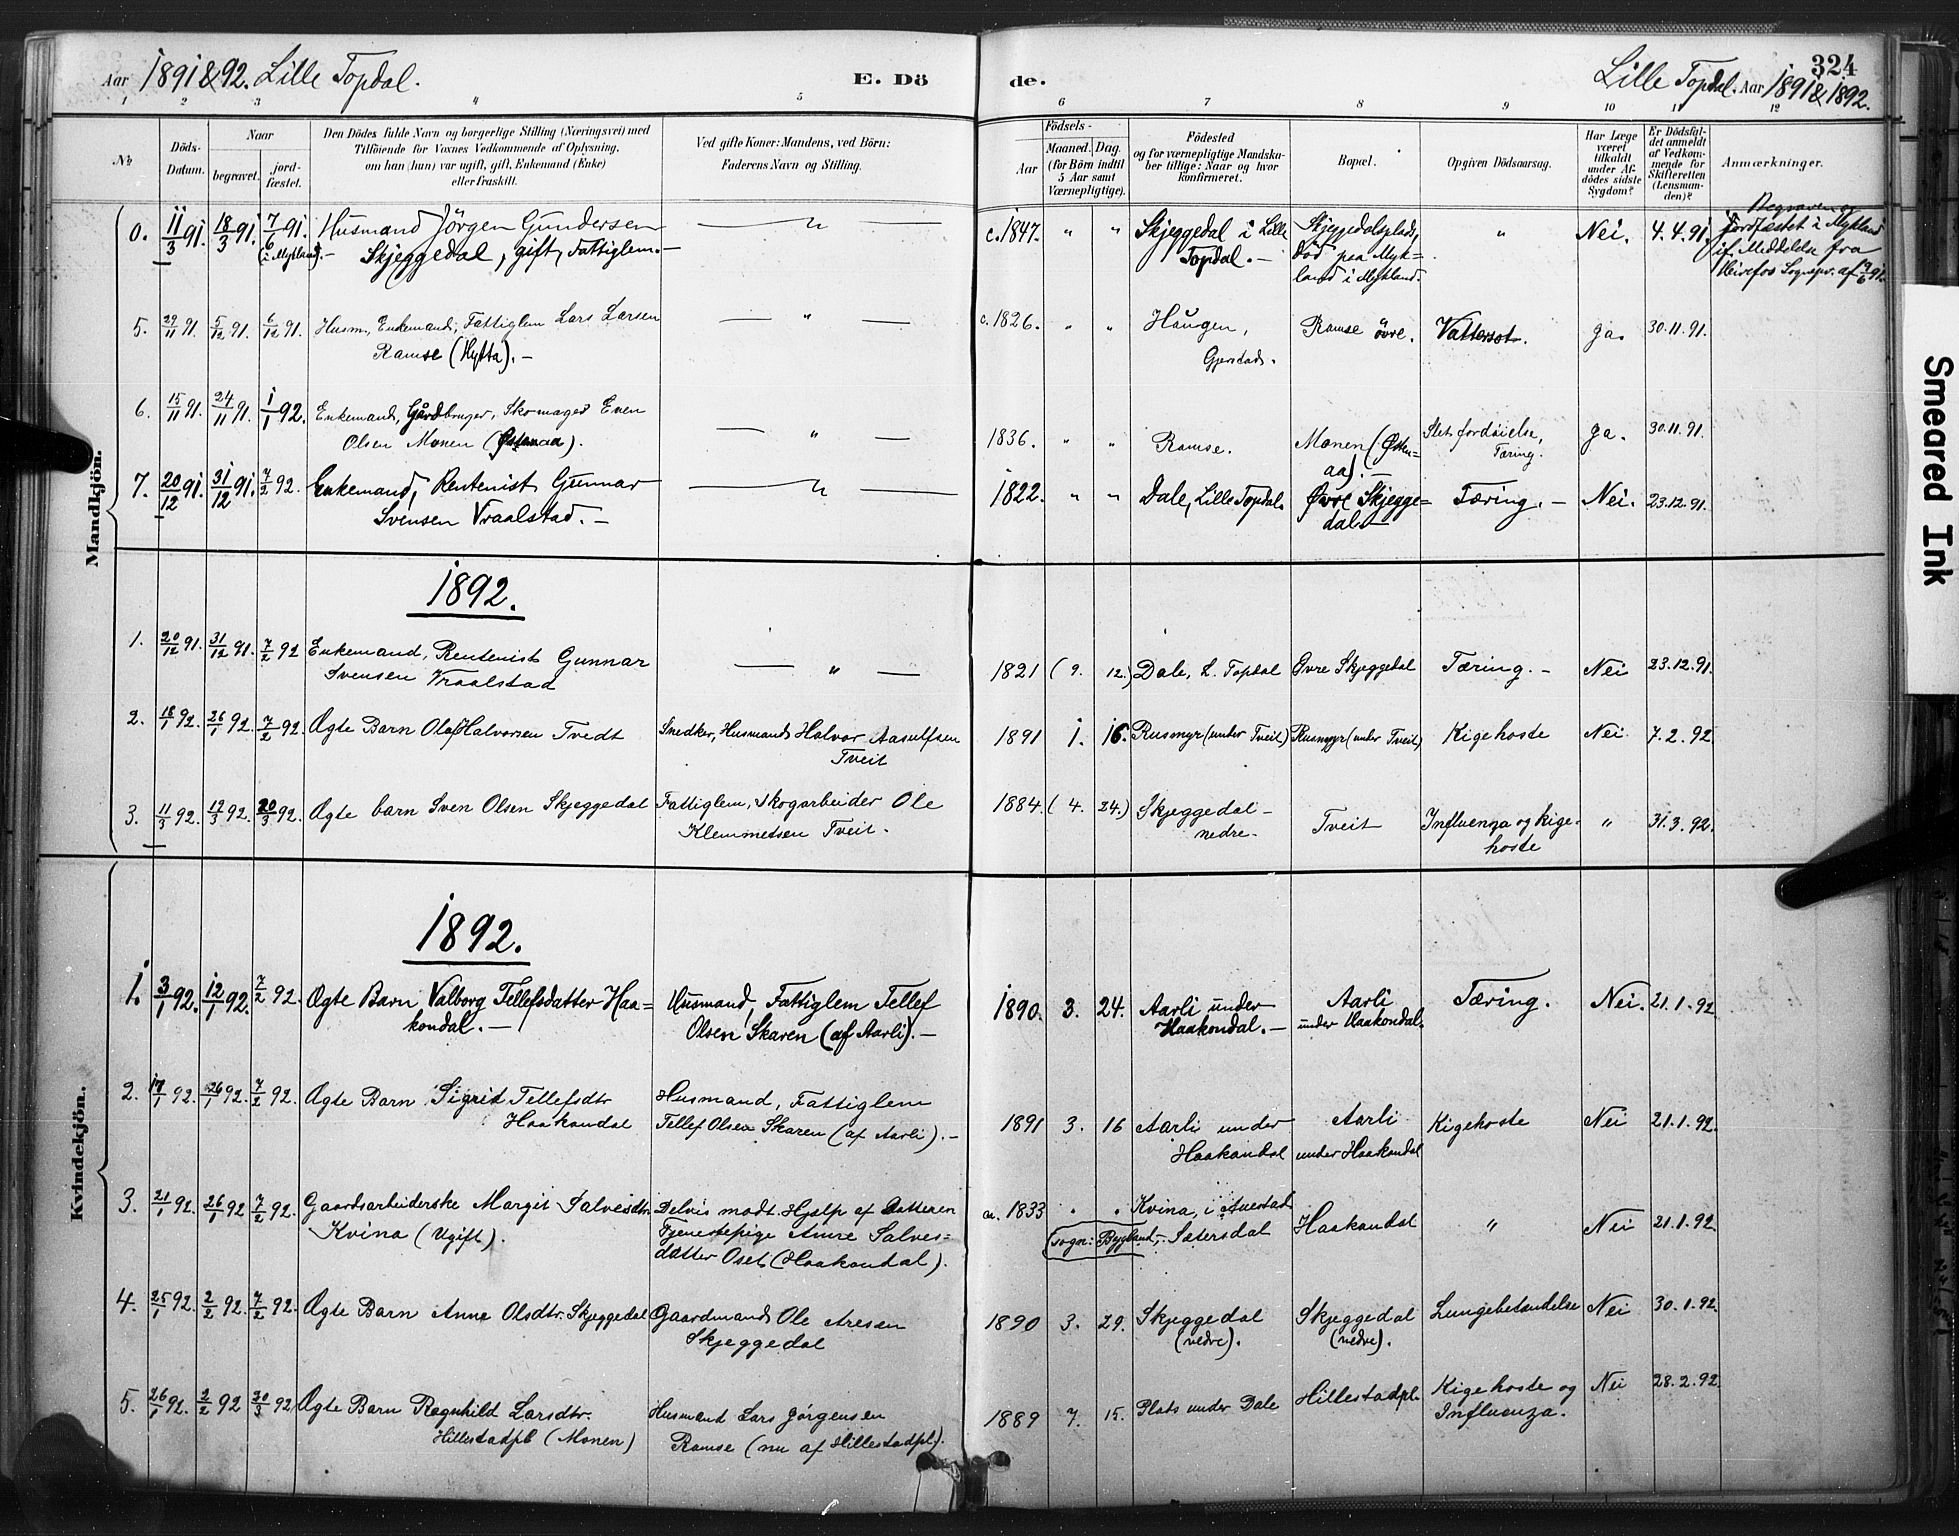 Aar 1891 & 92. Lille Topdal. E. Dö
de. Lille Topdal. Aar 1891 & 1892.
324
1 2 3 4 5 6 7 8 9 10 11 12
No
Döds-
Datum.
Naar
begravet.
jord-
fæstet.
Den Dödes fulde Navn og borgerlige Stilling (Næringsvei) med
Tilföiende for Voxnes Vedkommende af Oplysning,
om han (hun) var ugift, gift, Enkemand (Enke)
eller fraskilt.
Ved gifte Koner: Mandens, ved Börn:
Faderens Navn og Stilling.
Födsels-
Aar
Maaned. Dag.
(for Börn indtil
5 Aar samt
Værnepligtige).
Födested
og for værnepligtige Mandska-
ber tillige: Naar og hvor
konfirmeret.
Bopæl.
Opgiven Dödsaarsag.
Har Læge
været
tilkaldt
under Af-
dödes sidste
Sygdom?
Er Dödsfal-
det anmeldt
af Vedkom-
mende for
Skifteretten
(Lensman-
den)?
Anmærkninger.
Mandkjön.
0. 11/3 91. 18/3 91. 7/6 91. Husmand Jörgen Gundersen — " — c. 1847. " " Skjeggedal i Lille Skjeggedalsplads, " Nei. 4.4.91. Begraven og
(i Mykland). Skjeggedal, gift, Fattiglem. Topdal. død paa Myk- Jordfæstet i Mykland
land i Mykland. if. Meddelse fra
Herefos Sognepr. af 19/6 91.
5. 29/11 91. 5/12 91. 6/12 91. Husm., Enkemand, Fattiglem Lars Larsen — " — c. 1826. " " Haugen, Ramse övre. Vattersot. Ja. 30.11.91.
Ramse (Hytta). Gjerstad.
6. 15/11 91. 24/11 91. 1/1 92. Enkemand, Gårdbruger, Skomager Even
Olsen Monen (Østenaa). — " — 1836. " " Ramse. Monen (Østen- Slet fordøielse, Ja. 30.11.91.
aa). Tæring.
7. 20/12 91. 31/12 91. 7/2 92. Enkemand, Rentenist Gunnar — " — 1822. " " Dale, Lille Topdal. Øvre Skjegge- Tæring. Nei. 23.12.91.
Svensen Vraalstad. dal.
1892.
1. 20/12 91. 31/12 91. 7/2 92 Enkemand, Rentenist Gunnar — " — 1821 (9. 12.) Dale, L. Topdal Øvre Skjeggedal Tæring. Nei 23.12.91.
Svensen Vraalstad
2. 18/1 92. 26/1 92. 7/2 92. Ægte Barn Olaf Halvorsen Tvedt Snedker, Husmand Halvor Aasulfsen 1891 1. 16. Rusmyr (under Tveit) Rusmyr (under Tveit) Kigehoste Nei 7.2.92.
Tveit
3. 11/3 92. 19/3 92. 20/3 92. Ægte barn Sven Olsen Skjeggedal Fattiglem, Skogarbeider Ole 1884. (4. 24.) Skjeggedal Tveit Influenza og kige- " 31.3.92.
Klemmetsen Tveit. nedre. hoste
Kvindekjön.
1892.
1. 3/1 92. 12/1 92. 7/2 92. Ægte Barn Valborg Tellefsdatter Haa- Husmand, Fattiglem Tellef 1890. 3. 24. Aarli under Aarli Tæring. Nei. 21.1.92
kondal. Olsen Skaren (af Aarli). Haakondal. under Haakondal.
2. 17/1 92. 26/1 92. 7/2 92. Ægte Barn Sigrid Tellefsdtr Husmand, Fattiglem 1891 3. 16 Aarli under Aarli Kigehoste Nei 21.1.92.
Haakondal Tellef Olsen Skaren (af Aarli). Haakondal under Haakondal
3. 21/1 92. 26/1 92 7/2 92. Gaardsarbeiderske Margit Salvesdtr. Delvis modt. Hjælp af Datteren ca. 1833 " " Kvina, i Auestad Haakondal " Nei 21.1.92
Kvina (Ugift). Tjenestepige Anne Salves- (sogn: Bygland, Sætersdal
datter Oset (Haakondal).
4. 25/1 92. 2/2 92. 7/2 92. Ægte Barn Anne Olsdtr. Skjeggedal Gaardmand Ole Aresen 1890 3. 29. Skjeggedal Skjeggedal Lungebetændelse Nei 30.1.92.
Skjeggedal (nedre). (nedre).
5. 26/1 92. 2/2 92 20/3 92 Ægte Barn Ragnhild Larsdtr. Husmand Lars Jørgensen 1889 7. 15. Plads under Dale Hillestadpl. Kigehoste og Nei 28.2.92.
Hillestadpl (Monen) Ramse (nu af Hillestadpl). Influenza.
Smeared Ink